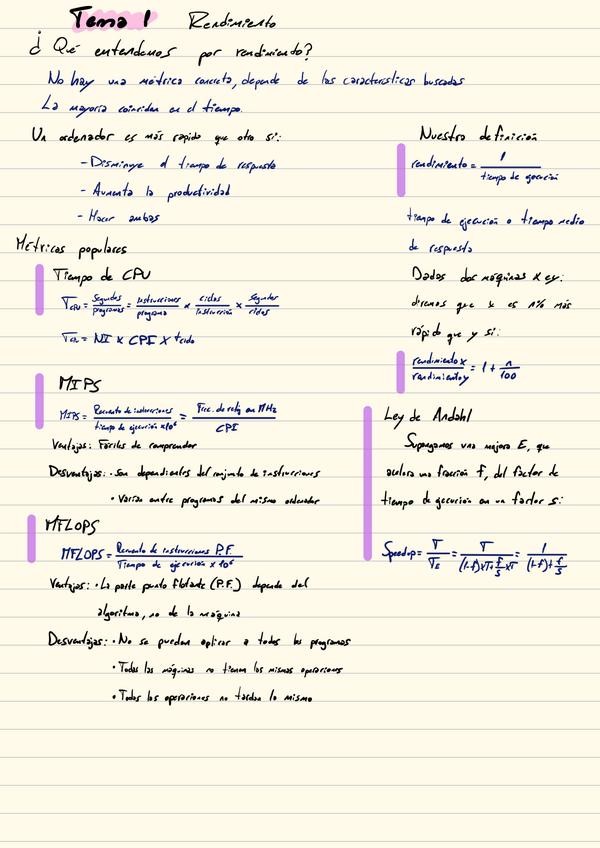 Tema 1 Rendimiento
¿Qué entendemos por rendimiento?
No hay una métrica concreta, depende de las características buscadas
La mayoría coinciden en el tiempo.
Un ordenador es más rápido que otro si:
- Disminuye el tiempo de respuesta
- Aumenta la productividad
- Hacer ambas
Métricas populares
Tiempo de CPU
T_CPU = Segundos/programas = instrucciones/programa × ciclos/instrucción × segundos/ciclos
T_CPU = NI × CPI × t_ciclo
MIPS
MIPS = Recuento de instrucciones/tiempo de ejecución x10⁶ = Frec. de reloj en MHz/CPI
Ventajas: Fáciles de comprender
Desventajas: · Son dependientes del conjunto de instrucciones
· Varían entre programas del mismo ordenador
MFLOPS
MFLOPS = Recuento de instrucciones P.F./Tiempo de ejecución x 10⁶
Ventajas: · La parte punto flotante (P.F.) depende del
algoritmo, no de la máquina
Desventajas: · No se pueden aplicar a todos los programas
· Todas las máquinas no tienen las mismas operaciones
· Todas las operaciones no tardan lo mismo
Nuestra definición
rendimiento = 1/tiempo de ejecución
tiempo de ejecución o tiempo medio
de respuesta
Dadas dos máquinas x e y:
diremos que x es n% más
rápido que y si:
rendimiento x/rendimiento y = 1 + n/100
Ley de Amdahl
Supongamos una mejora E, que
acelera una fracción f, del factor de
tiempo de ejecución en un factor s:
Speedup = T/T_E = T/((1-f)xT+f/s xT) = 1/((1-f)+f/s)